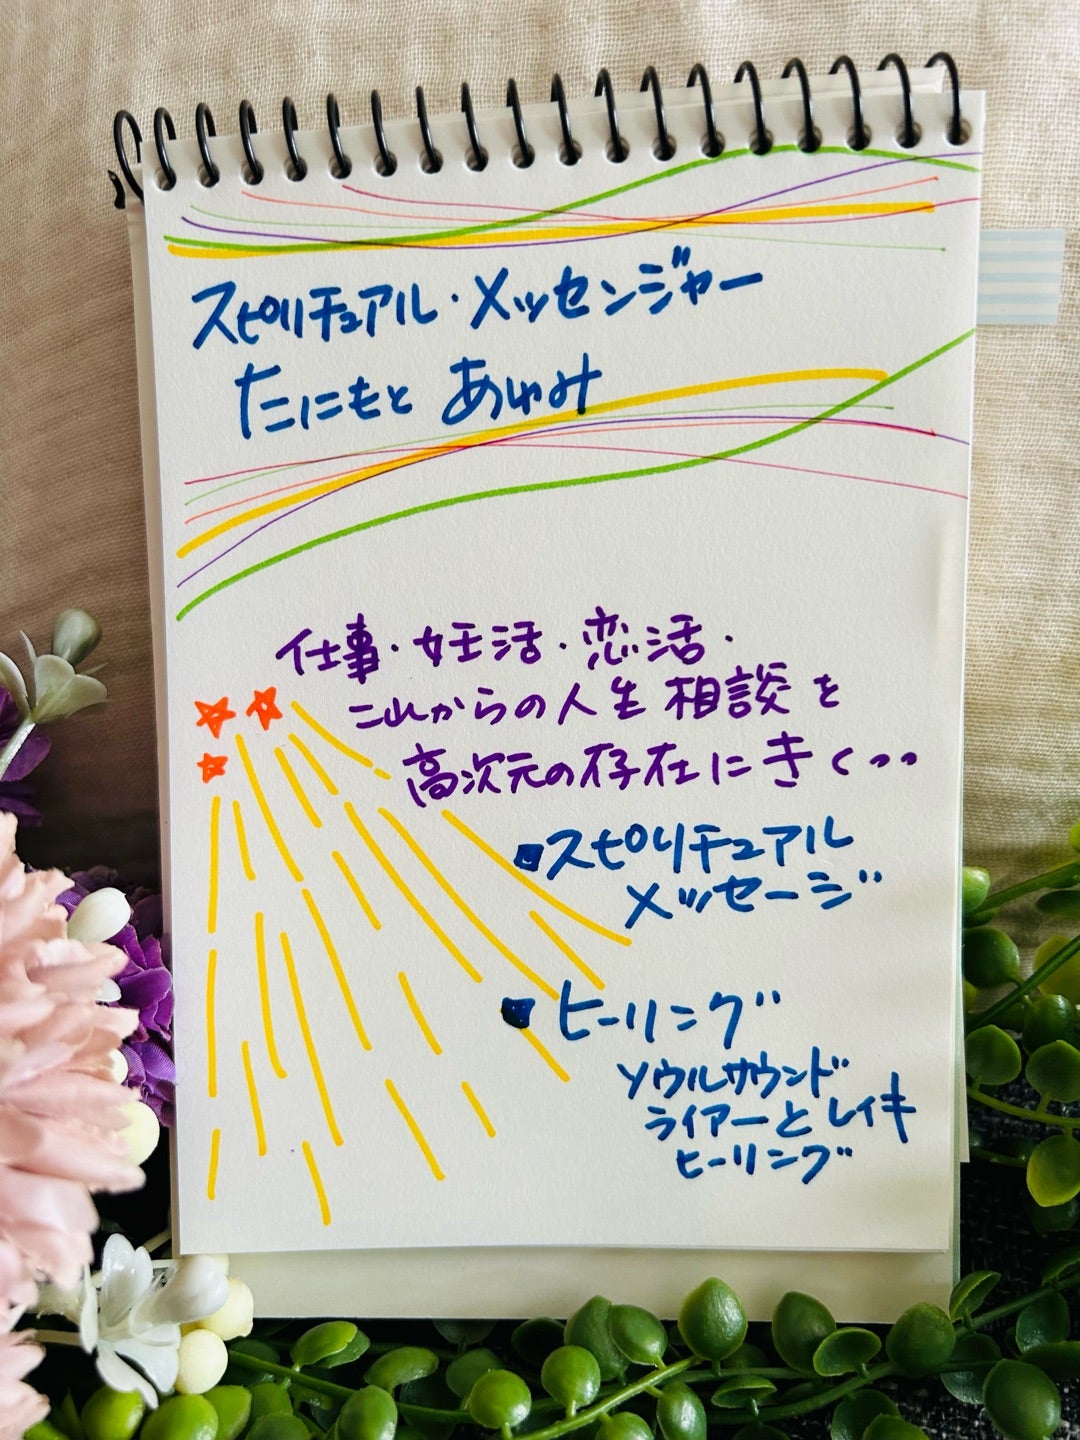 スピリチュアル・メッセンジャー
たにもと あゆみ
仕事・妊活・恋活・
これからの人生 相談を
高次元の存在にきく・・
■スピリチュアル
メッセージ
■ヒーリング
ソウルサウンド
ライアーとレイキ
ヒーリング